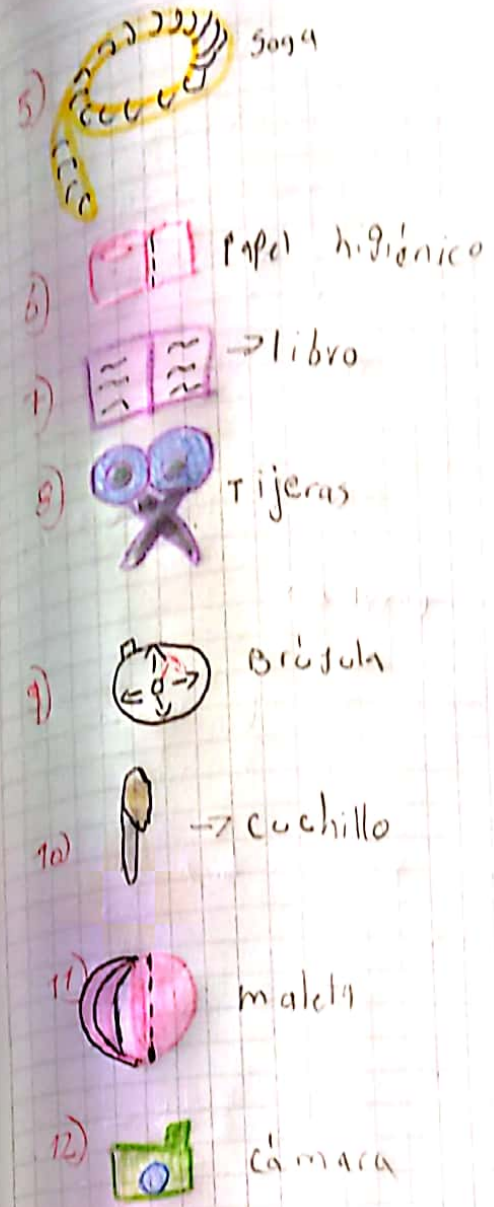 5) Soga
6) Papel higiénico
7) →libro
8) Tijeras
9) Brújula
10) → cuchillo
11) maleta
12) cámara